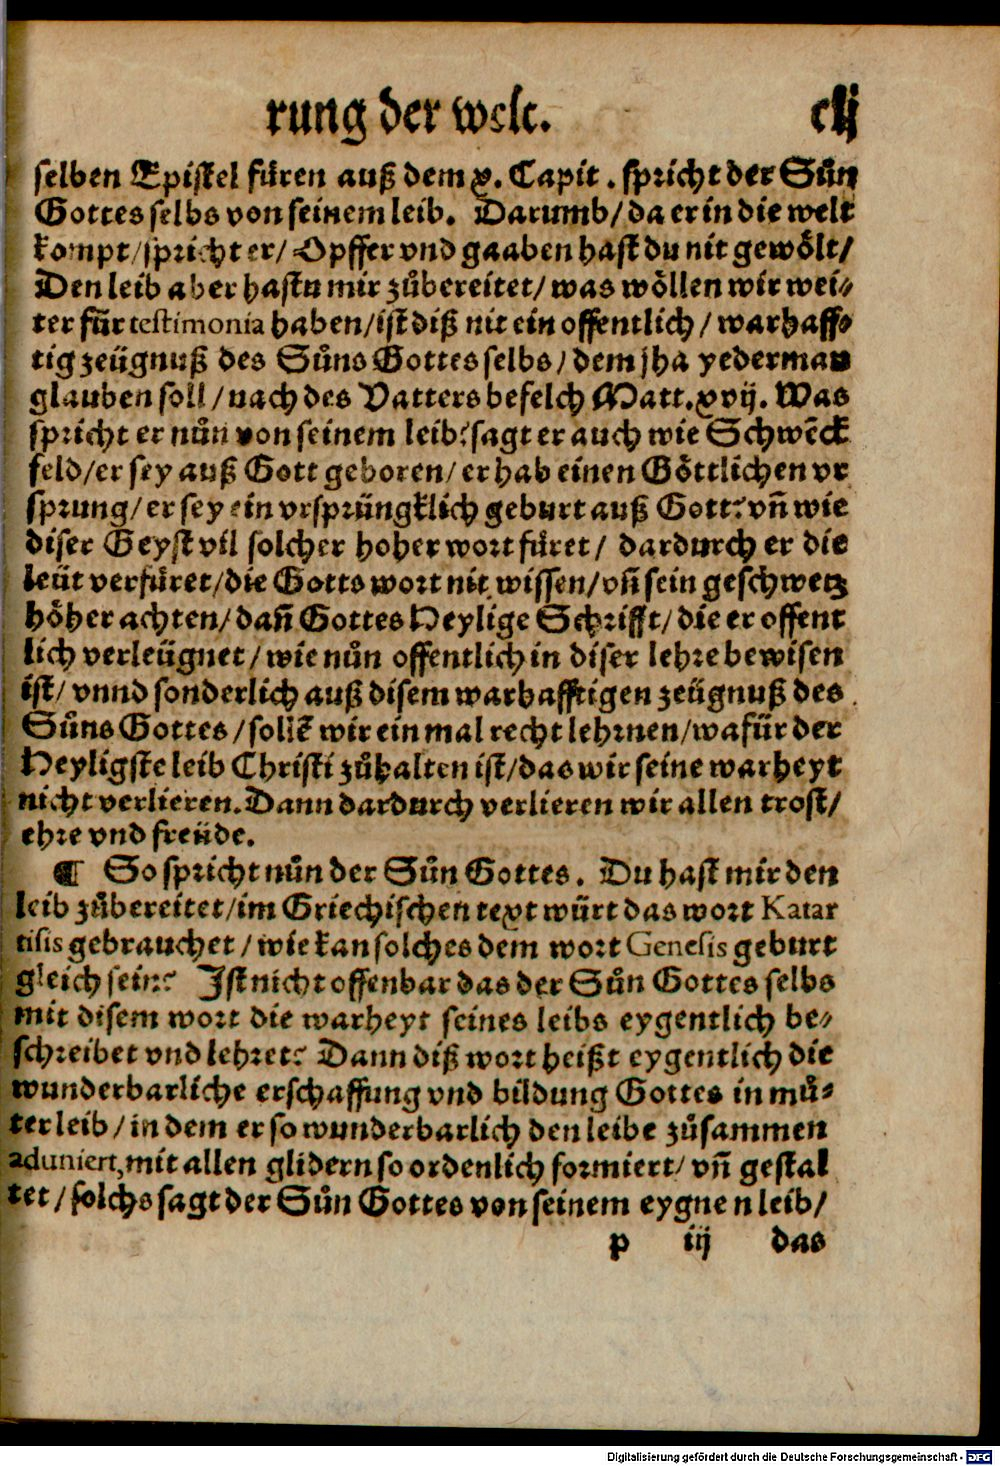 rung der welt. clj
selben Epistel fůren auß dem x. Capit. spricht der Sůn
Gottes selbs von seinem leib. Darumb/ da er in die welt
kompt/ spricht er/ Opffer vnd gaaben hast du nit gewölt/
Den leib aber hastu mir zůbereitet/ was wöllen wir wei⸗
ter für testimonia haben/ ist diß nit ein offentlich/ warhaff⸗
tig zeügnuß des Sůns Gottes selbs/ dem jha yederman
glauben soll/ nach des Vatters befelch Matt. xvij. Was
spricht er nůn von seinem leib? sagt er auch wie Schwēck
feld/ er sey auß Gott geboren/ er hab einen Göttlichen vr
sprung/ er sey ein vrsprüngklich geburt auß Gott? vñ wie
diser Geyst vil solcher hoher wort fůret/ dardurch er die
leüt verfůret/ die Gotts wort nit wissen/ vñ sein geschwetz
höher achten/ dañ Gottes Heylige Schrifft/ die er offent
lich verleügnet/ wie nůn offentlich in diser lehre bewisen
ist/ vnnd sonderlich auß disem warhafftigen zeügnuß des
Sůns Gottes/ sollē wir ein mal recht lehrnen/ wafür der
Heyligste leib Christi zůhalten ist/ das wir seine warheyt
nicht verlieren. Dann dardurch verlieren wir allen trost/
ehre vnd freüde.
¶ So spricht nůn der Sůn Gottes. Du hast mir den
leib zůbereitet/ im Griechischen text würt das wort Katar
tisis gebrauchet/ wie kan solches dem wort Genesis geburt
gleich sein? Ist nicht offenbar das der Sůn Gottes selbs
mit disem wort die warheyt seines leibs eygentlich be⸗
schreibet vnd lehret? Dann diß wort heißt eygentlich die
wunderbarliche erschaffung vnd bildung Gottes in můͦ⸗
ter leib/ in dem er so wunderbarlich den leibe zůsammen
aduniert, mit allen glidern so ordenlich formiert/ vñ gestal
tet/ solchs sagt der Sůn Gottes von seinem eygnen leib/
p iij das
Digitalisierung gefördert durch die Deutsche Forschungsgemeinschaft - DFG